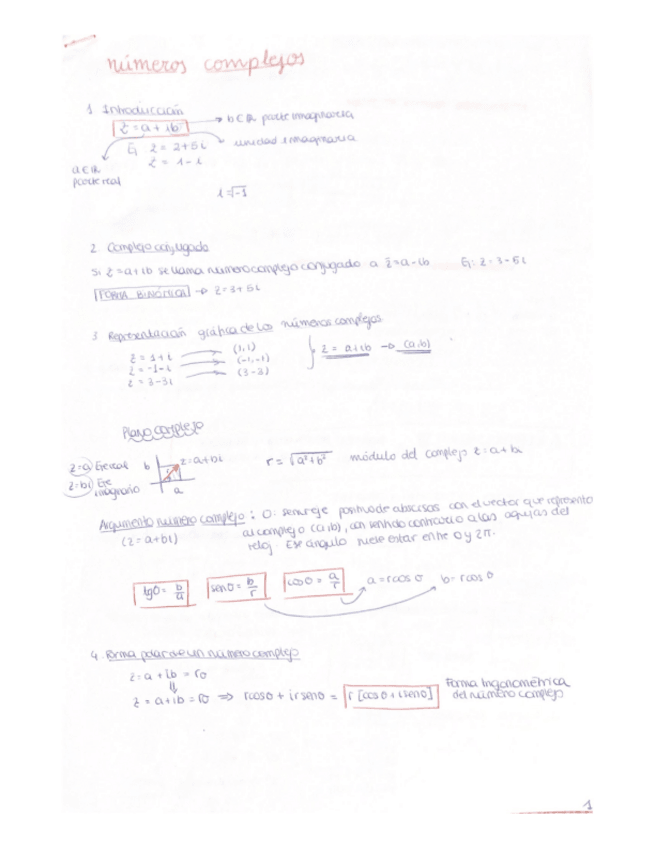 números complejos
1 Introducción
z = a + ib → b ∈ ℝ parte imaginaria
unidad imaginaria
Ej z = 2+5i
z = 1-i
a ∈ ℝ
parte real
i = √-1
2. Complejo conjugado
Si z = a+ib se llama numero complejo conjugado a z̄ = a-ib Ej: z̄ = 3-5i
FORMA BINÓMICA → z = 3+5i
3 Representación gráfica de los números complejos
z = 1+i → (1,1)
z = -1-i → (-1,-1)
z = 3-3i → (3-3)
z = a+ib → (a,b)
Plano complejo
z=a Eje real
z=bi Eje imaginario
b
z=a+bi
a
r = √a²+b² módulo del complejo z = a+bi
Argumento número complejo: θ: semieje positivo de abscisas con el vector que representa
(z=a+bi)
al complejo (a,b), con sentido contrario a las agujas del
reloj. Ese ángulo suele estar entre 0 y 2π.
tgθ = b/a senθ = b/r cosθ = a/r a = r cosθ b = r cosθ
4. Forma polar de un número complejo
z = a + ib = rθ
⇓
z = a+ib = rθ ⇒ rcosθ + i r senθ = r [cosθ + i senθ]
Forma trigonométrica
del número complejo
1